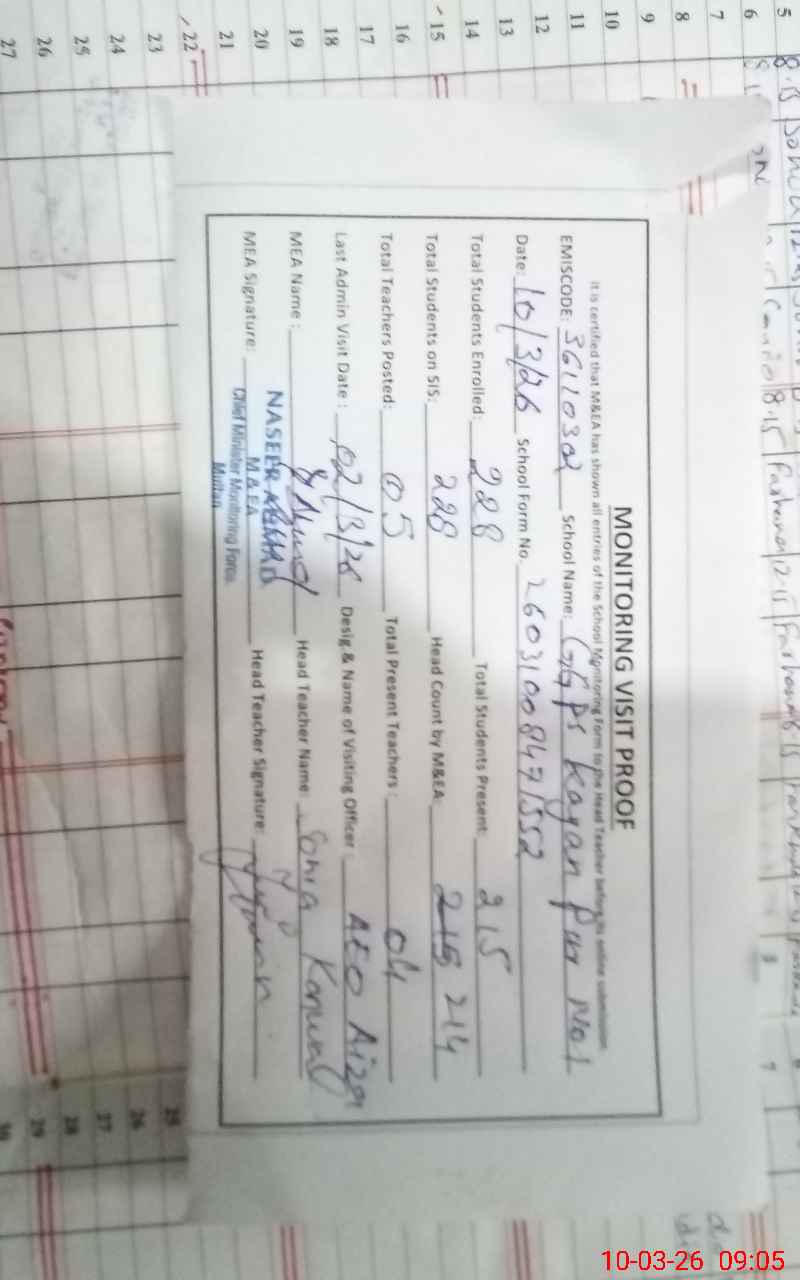 MONITORING VISIT PROOF
It is certified that M&EA has shown all entries of the School Monitoring Form to the Head Teacher before its online submission
EMISCODE: 36110302 School Name: GGPS Kayan Pur No1
Date: 10/3/26 School Form No. 2603100847552
Total Students Enrolled: 228 Total Students Present: 215
Total Students on SIS: 228 Head Count by M&EA 215 214
Total Teachers Posted: 05 Total Present Teachers: 04
Last Admin Visit Date: 02/3/26 Desig & Name of Visiting Officer: AEO Aiza
MEA Name: Head Teacher Name: Sonia Kanwal
MEA Signature: Head Teacher Signature:
NASEER AHMAD
M & EA
Chief Minister Monitoring Force
Multan
5
6
7
8
9
10
11
12
13
14
15
16
17
18
19
20
21
22
23
24
25
26
27
25
26
27
28
29
10-03-26 09:05